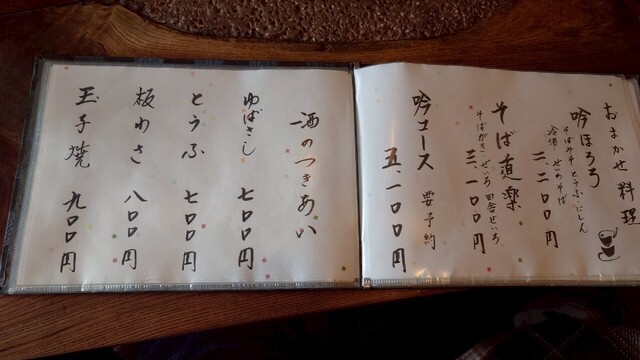 おまかせ料理
吟ほろろ
そばみそ とうふ にしん
せいろそば
二、二〇〇円
そば道楽
そばがき せいろ 田舎せいろ
三、一〇〇円
吟コース 要予約
五、一〇〇円
酒のつきあい
ゆばさし 七〇〇円
とうふ 七〇〇円
板わさ 八〇〇円
玉子焼 九〇〇円